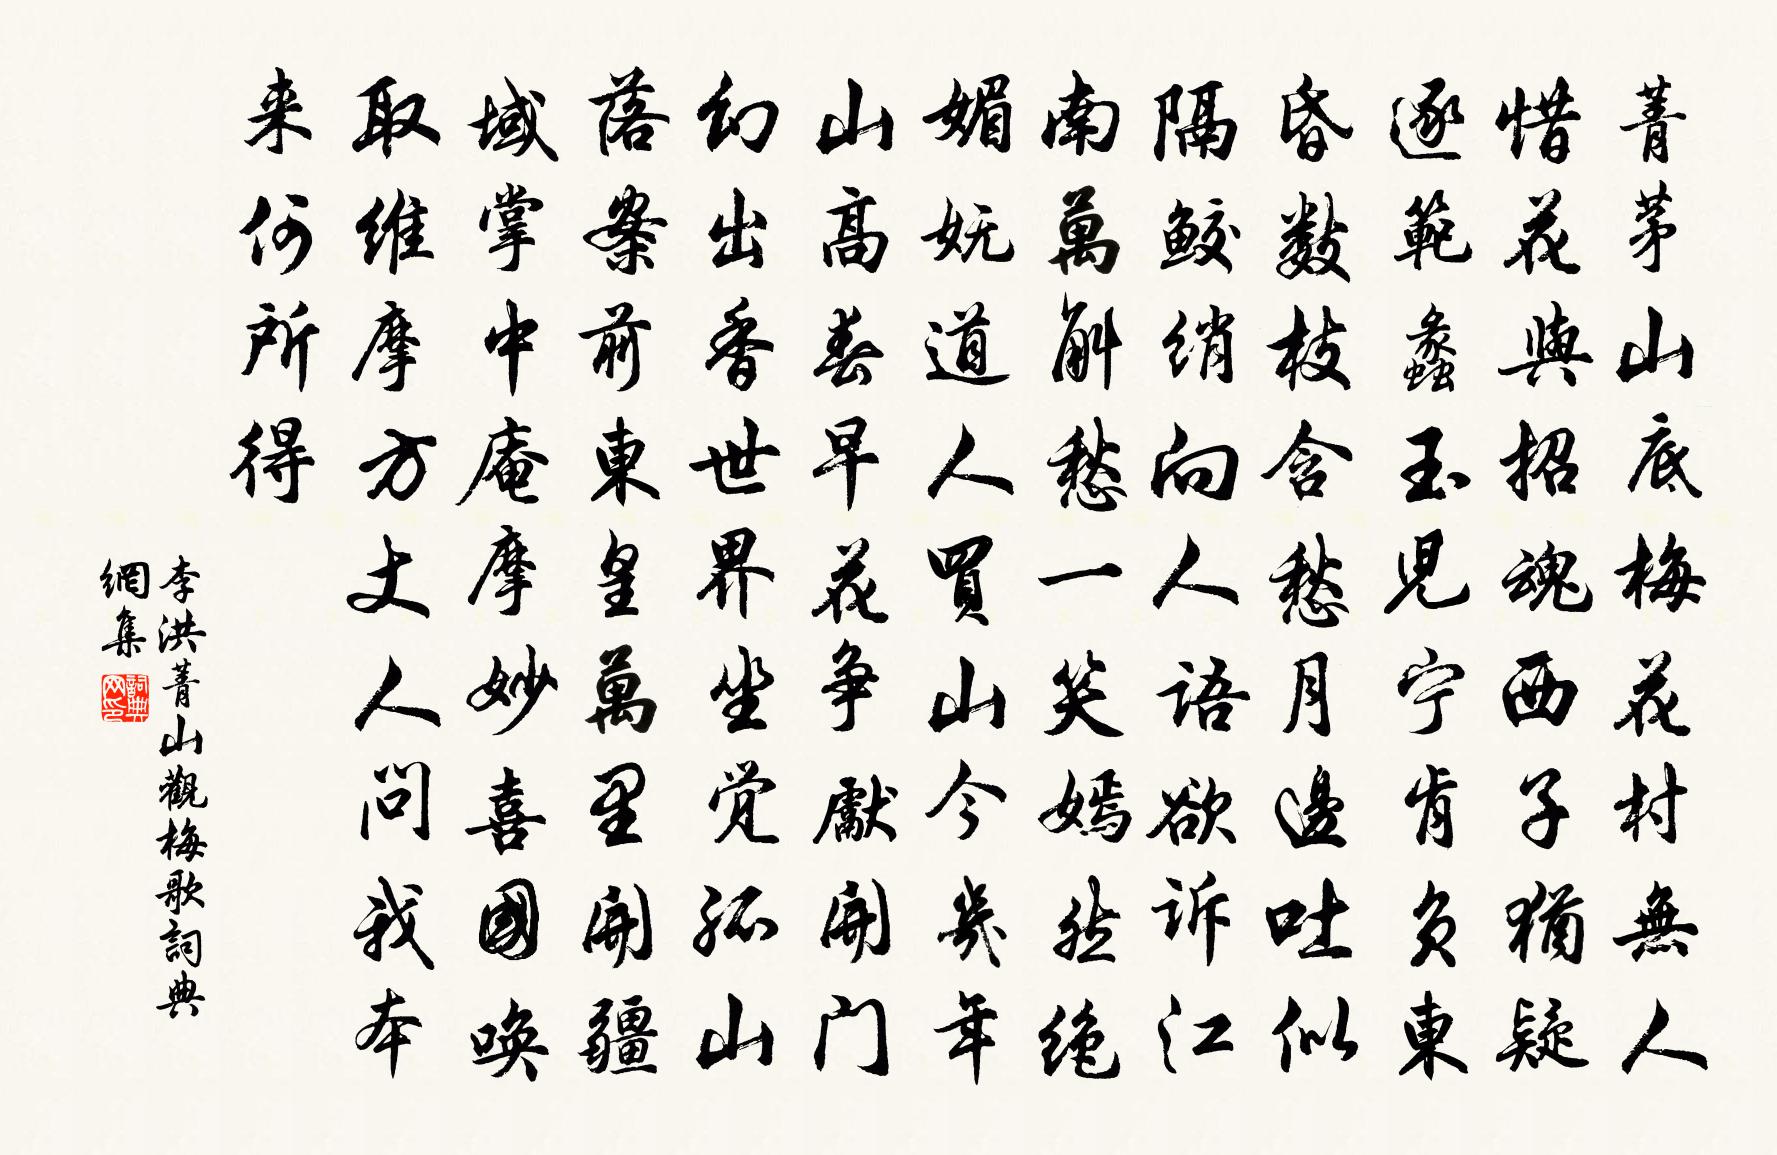 菁茅山底梅花村無人
惜花與招魂西子猶疑
逐範蠡玉兒宁肯負東
昏數枝含愁月邊吐似
隔鮫綃向人語欲诉江
南萬斛愁一笑嫣然绝
媚妩道人買山今幾年
山高春早花争獻開门
幻出香世界坐觉孤山
落案前東皇萬里開疆
域掌中庵摩妙喜國唤
取維摩方丈人问我本
来何所得
李洪菁山觀梅歌詞典
網集
詞典网印